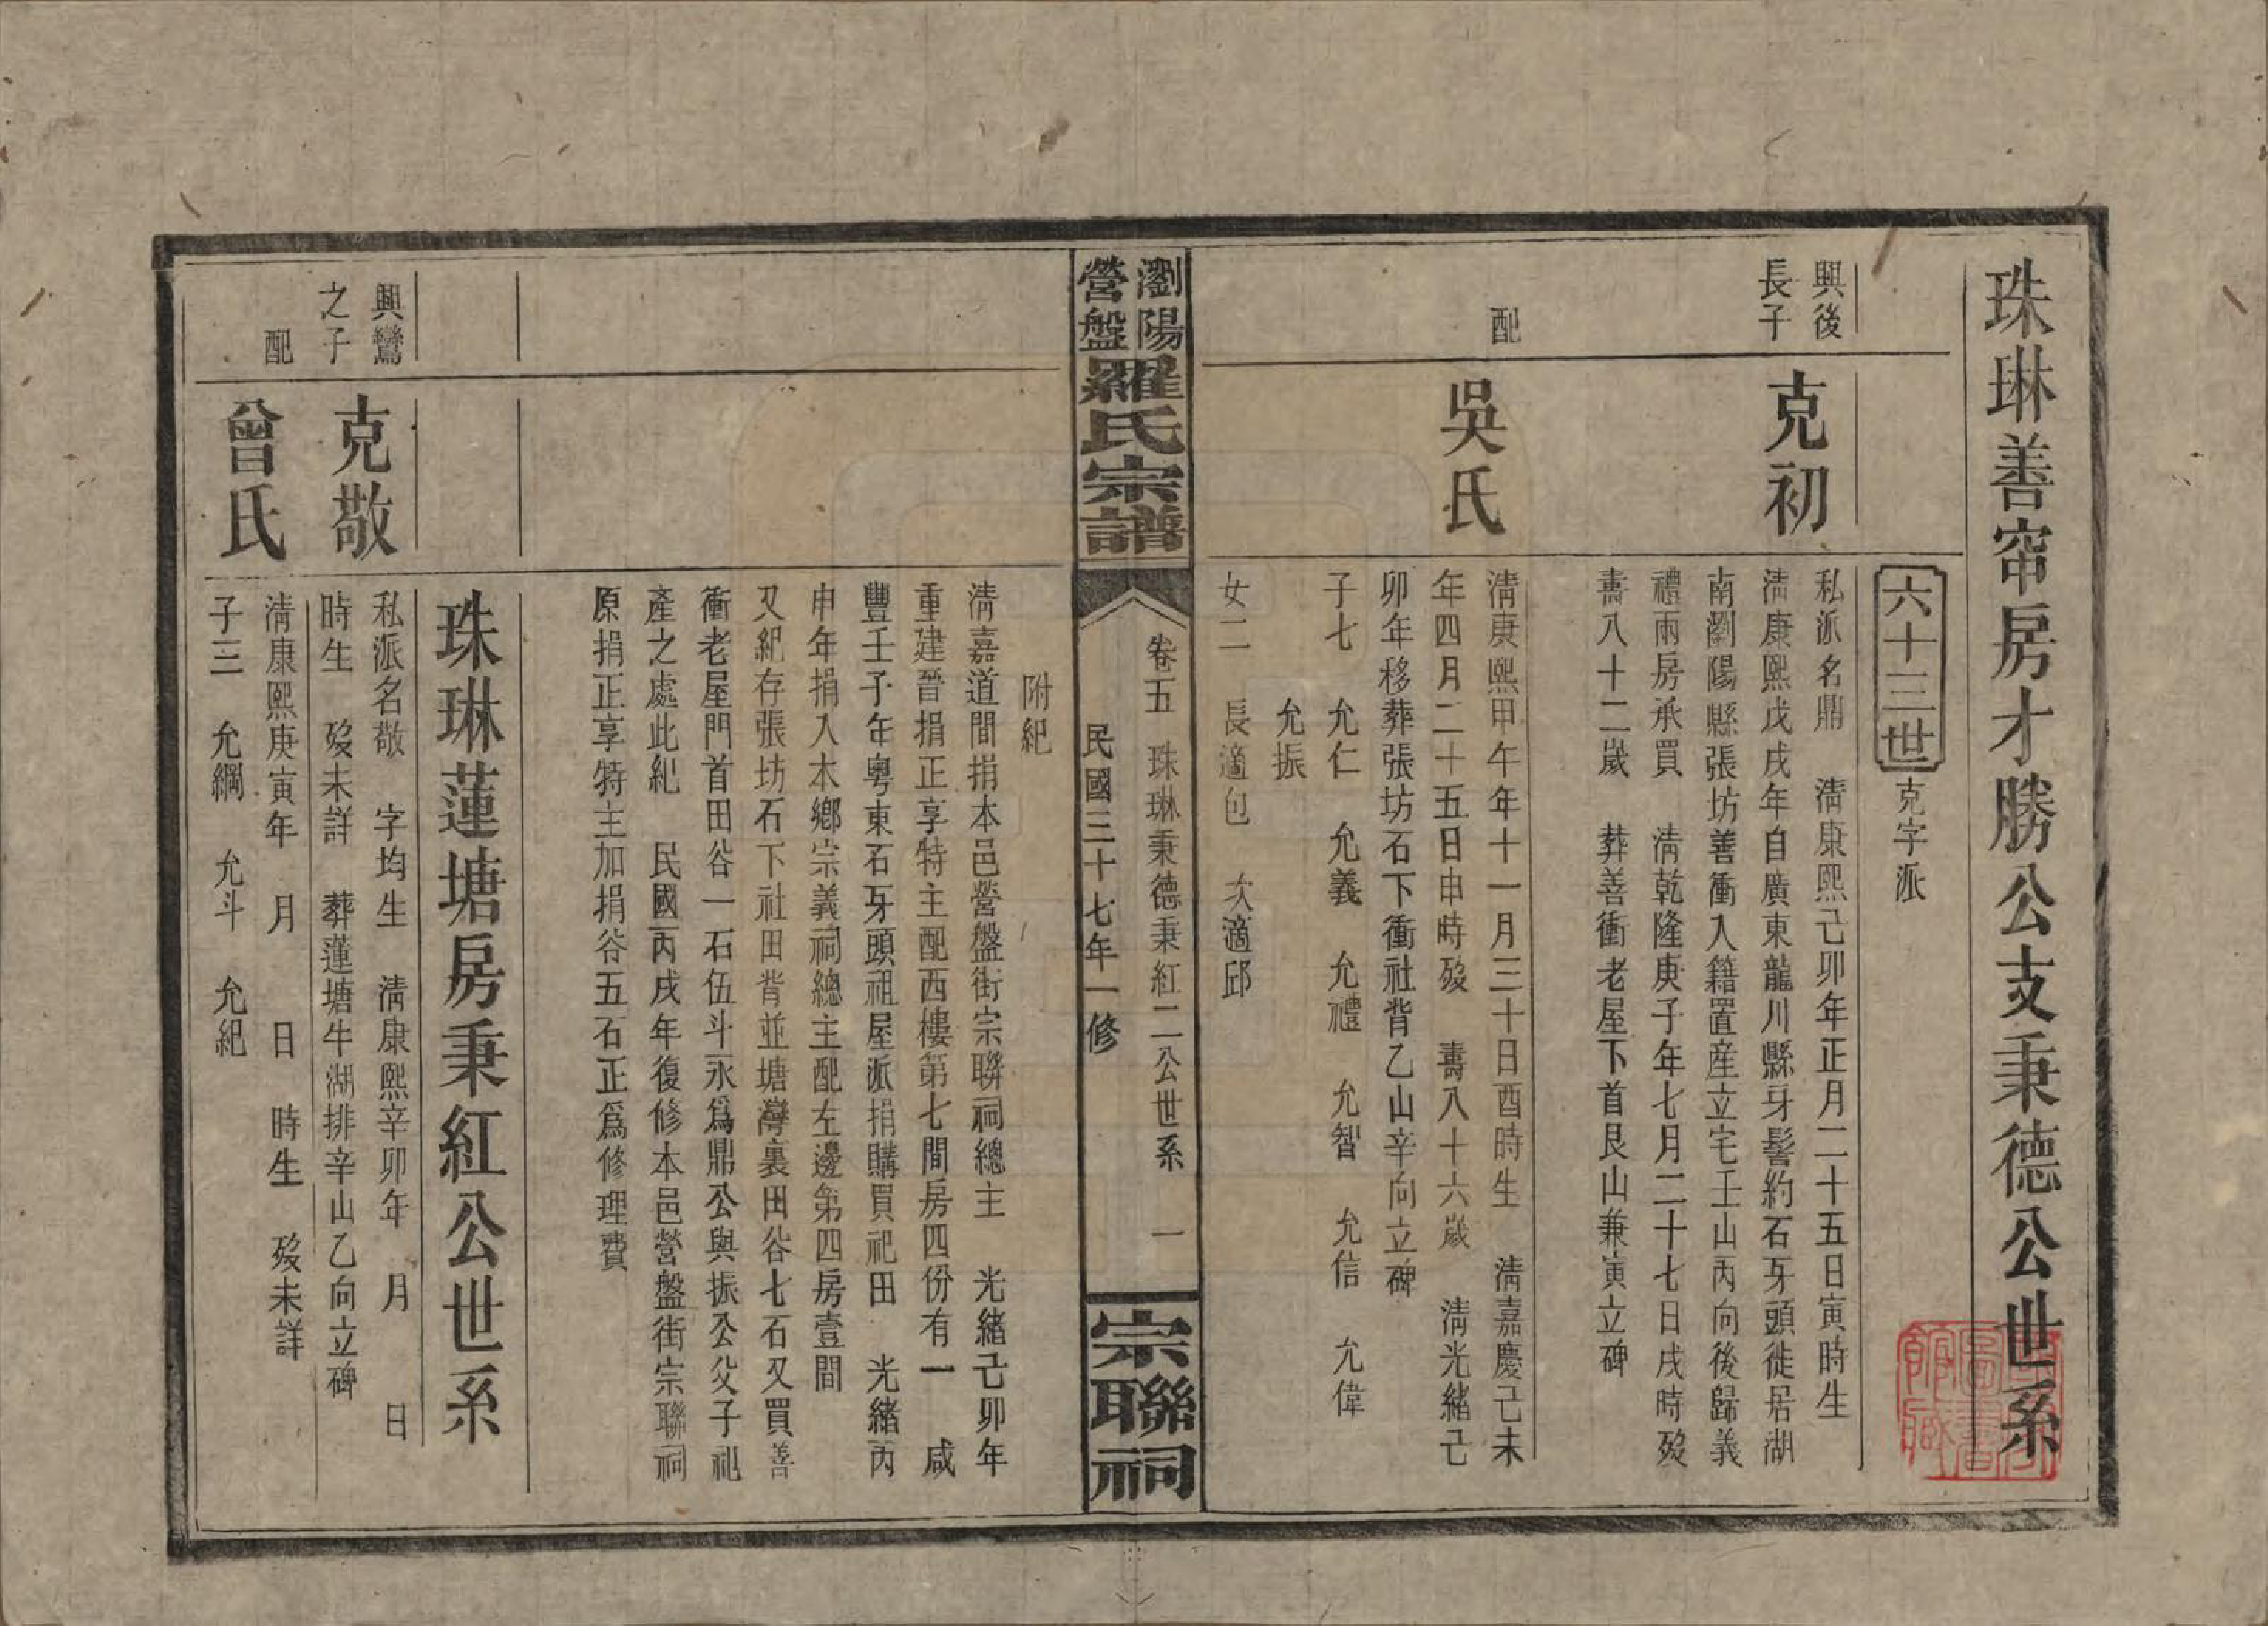 珠琳善窜房才勝公支秉德公世系
六十三世
克字派
興後
長子
克初
私派名鼎　清康熙己卯年正月二十五日寅時生
清康熙戊戌年自廣東龍川縣牙髻約石牙頭徙居湖
南瀏陽縣張坊善衝入籍置産立宅壬山丙向後歸義
禮兩房承買　清乾隆庚子年七月二十七日戌時歿
壽八十二歲　葬善衝老屋下首艮山兼寅立碑
配
吳氏
清康熙甲午年十一月三十日酉時生　清嘉慶己未
年四月二十五日申時歿　壽八十六歲　清光緒己
卯年移葬張坊石下衝社背乙山辛向立碑
子七　允仁　允義　允禮　允智　允信　允偉
允振
女二　長適包　次適邱
瀏陽
營盤
羅氏宗譜
卷五　珠琳秉德秉紅二公世系　一
民國三十七年一修
宗聯祠
附紀
清嘉道間捐本邑營盤街宗聯祠總主　光緒己卯年
重建晉捐正享特主配西樓第七間房四份有一　咸
豐壬子年粵東石牙頭祖屋派捐購買祀田　光緒丙
申年捐入本鄉宗義祠總主配左邊第四房壹間
又紀存張坊石下社田背並塘灣裏田谷七石又買善
衝老屋門首田谷一石伍斗永爲鼎公與振公父子祀
產之處此紀　民國丙戌年復修本邑營盤街宗聯祠
原捐正享特主加捐谷五石正爲修理費
珠琳蓮塘房秉紅公世系
興鸞
之子
克敬
私派名敬　字均生　清康熙辛卯年　月　日
時生　歿未詳　葬蓮塘牛湖排辛山乙向立碑
配
曾氏
清康熙庚寅年　月　日　時生　歿未詳
子三　允綱　允斗　允紀